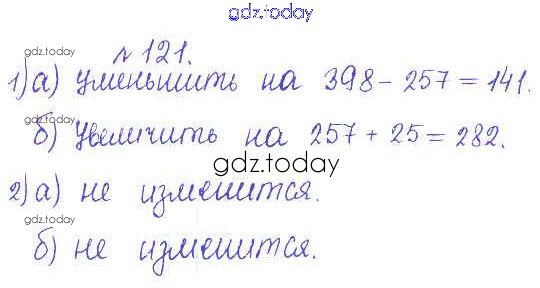 gdz.today
gdz.today
№ 121.
1) а) уменьшить на 398 - 257 = 141.
gdz.today
gdz.today
б) увеличить на 257 + 25 = 282.
gdz.today
gdz.today
2) а) не изменится.
gdz.today
б) не изменится.